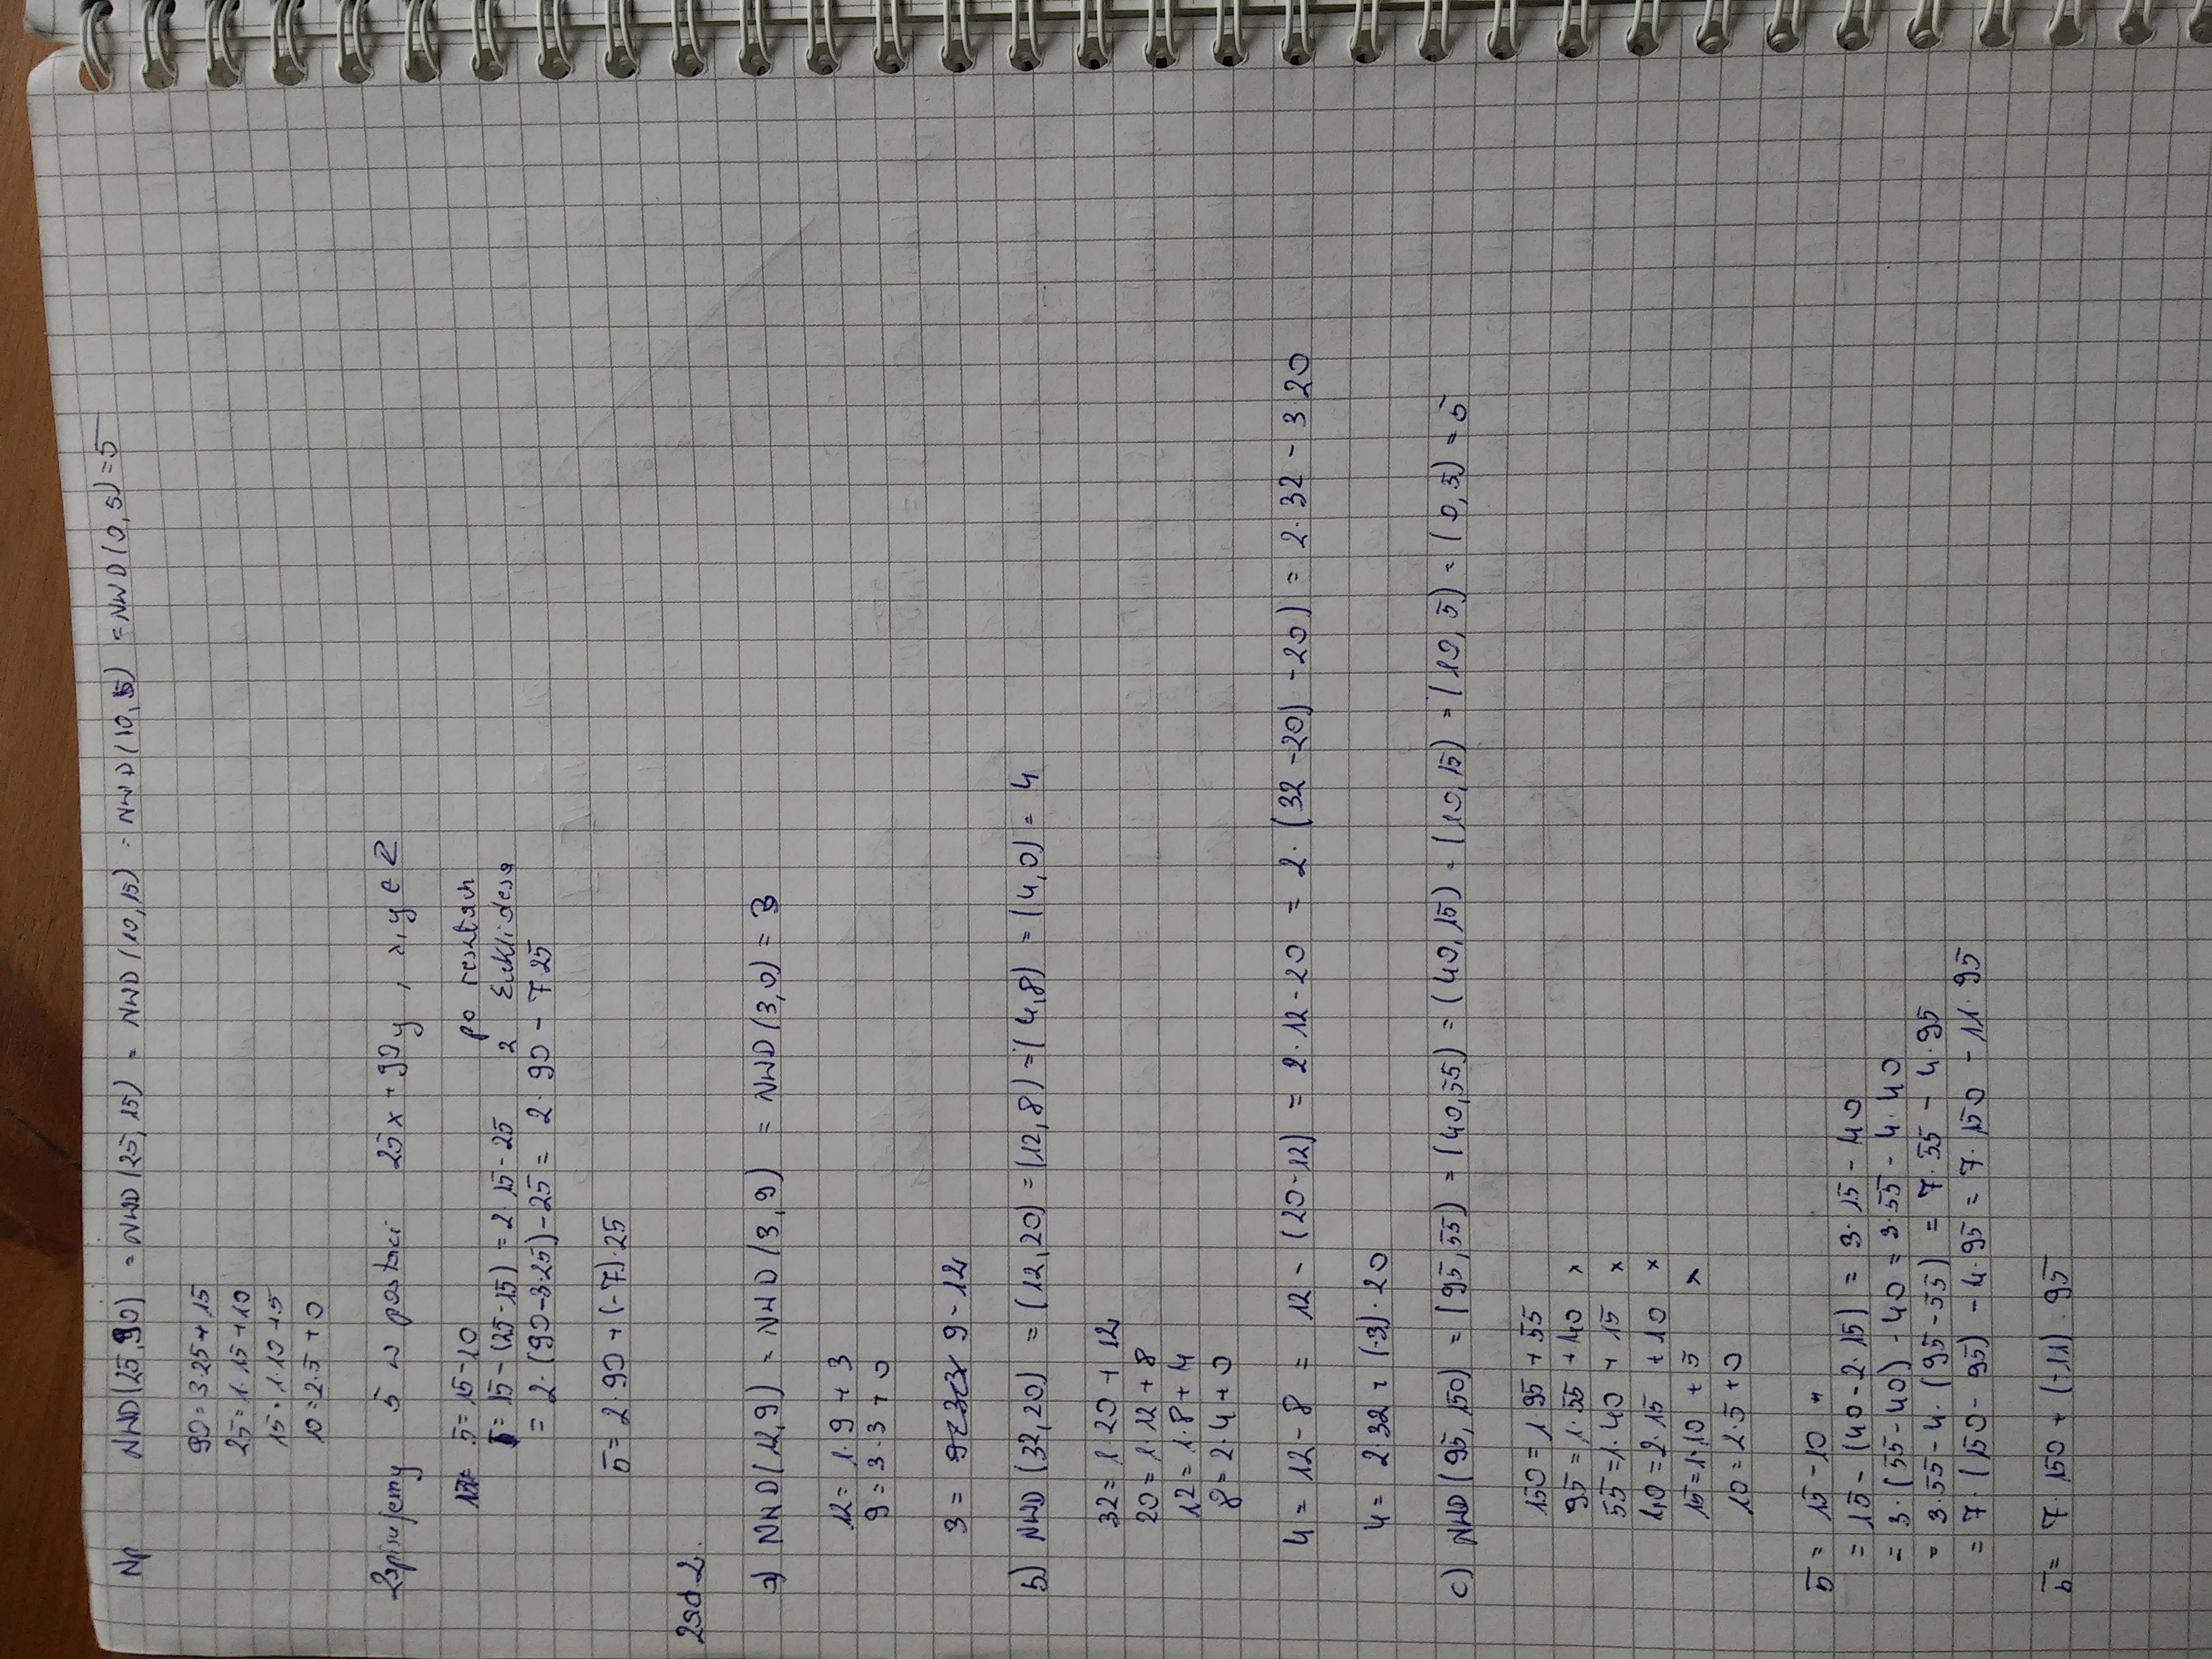 Np NWD(25,90) = NWD(25,15) = NWD(10,15) = NWD(10,5) = NWD(0,5) = 5
90 = 3·25 + 15
25 = 1·15 + 10
15 = 1·10 + 5
10 = 2·5 + 0
Zapisujemy 5 w postaci 25x + 90y , x,y ∈ Z
5 = 15 - 10 po resztach
5 = 15 - (25 - 15) = 2·15 - 25 z Euklidesa
= 2·(90 - 3·25) - 25 = 2·90 - 7·25
5 = 2·90 + (-7)·25
Zad.2.
a) NWD(12,9) = NWD(3,9) = NWD(3,0) = 3
12 = 1·9 + 3
9 = 3·3 + 0
3 = 9 - 12
b) NWD(32,20) = (12,20) = (12,8) = (4,8) = (4,0) = 4
32 = 1·20 + 12
20 = 1·12 + 8
12 = 1·8 + 4
8 = 2·4 + 0
4 = 12 - 8 = 12 - (20 - 12) = 2·12 - 20 = 2·(32 - 20) - 20) = 2·32 - 3·20
4 = 2·32 + (-3)·20
c) NWD(95,150) = (95,55) = (40,55) = (40,15) = (10,15) = (10,5) = (0,5) = 5
150 = 1·95 + 55
95 = 1·55 + 40 x
55 = 1·40 + 15 x
40 = 2·15 + 10 x
15 = 1·10 + 5 x
10 = 2·5 + 0
5 = 15 - 10
= 15 - (40 - 2·15) = 3·15 - 40
= 3·(55 - 40) - 40 = 3·55 - 4·40
= 3·55 - 4·(95 - 55) = 7·55 - 4·95
= 7·(150 - 95) - 4·95 = 7·150 - 11·95
5 = 7·150 + (-11)·95